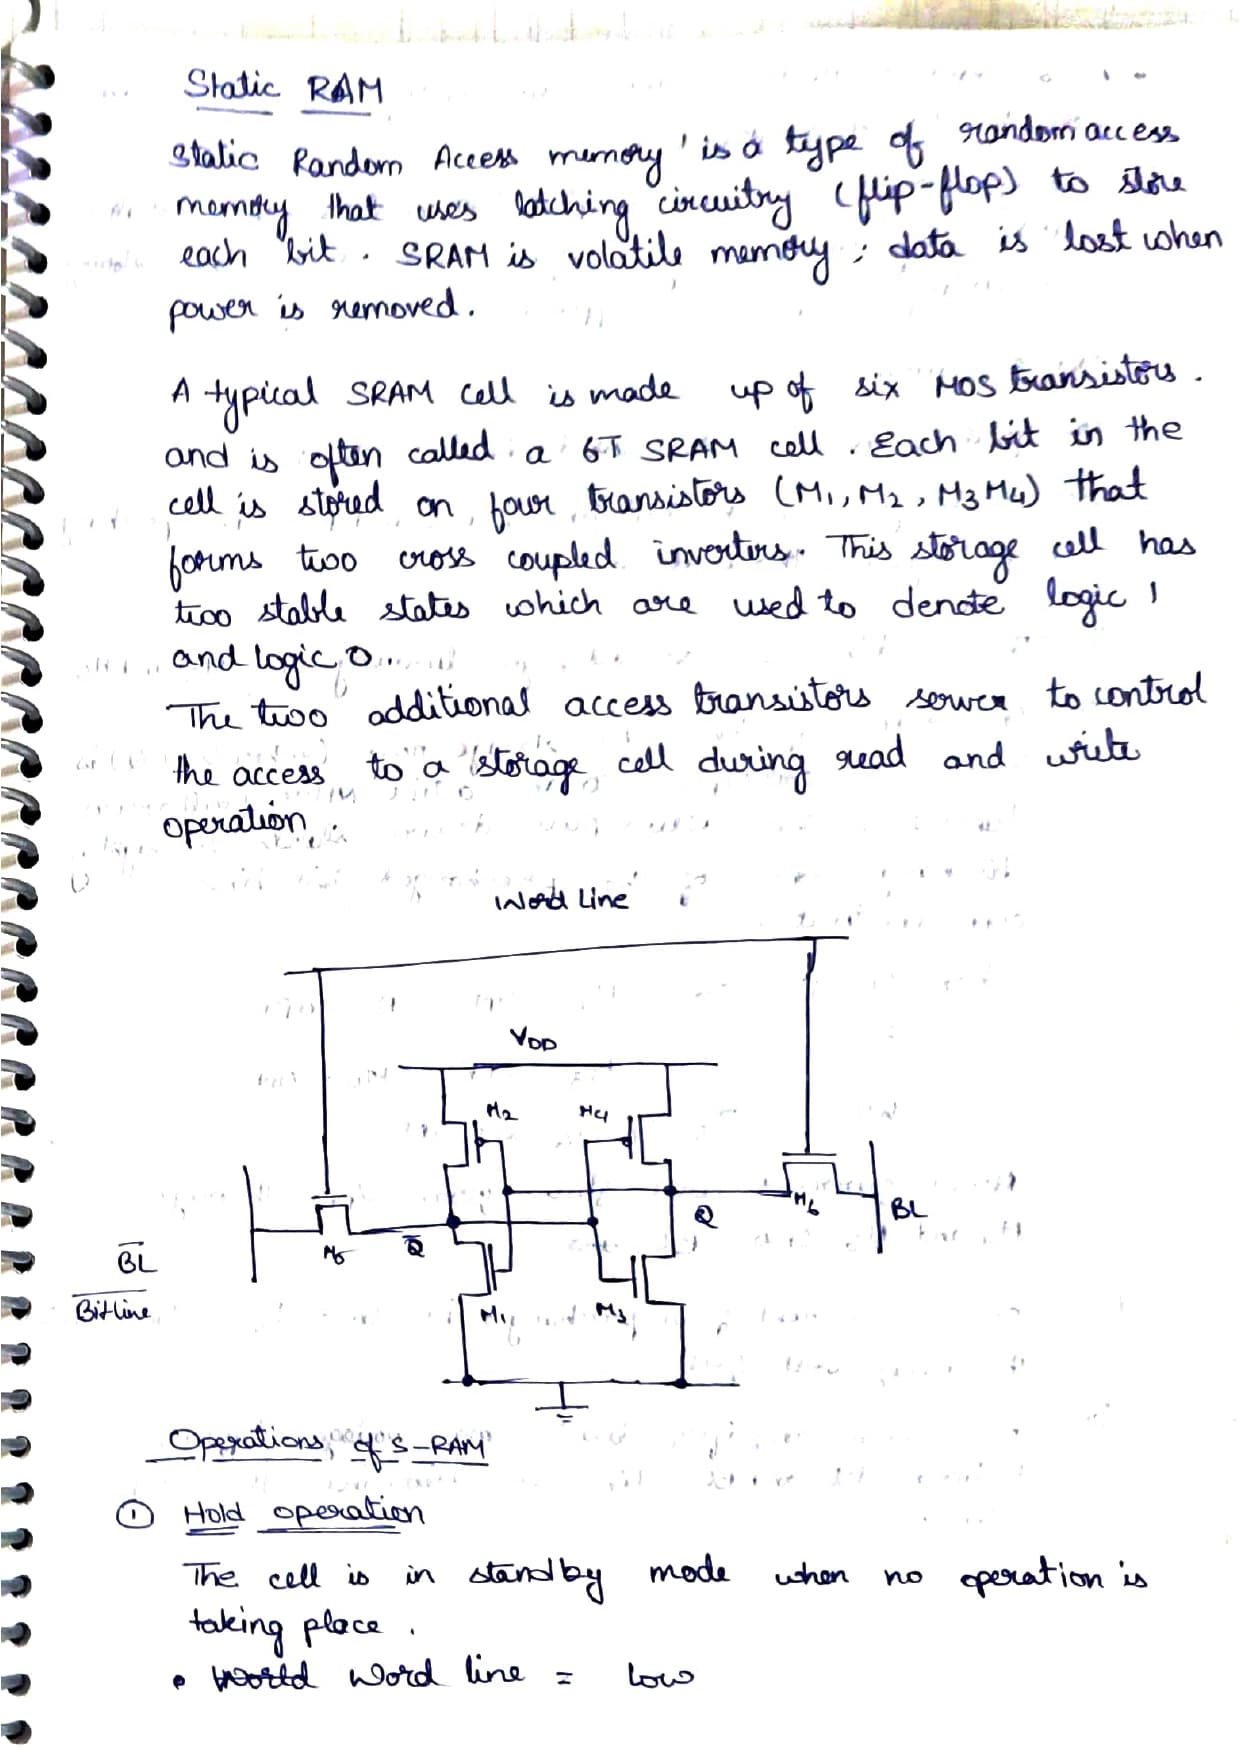 Static RAM
Static Random Access memory' is a type of random access
memory that uses latching circuitry (flip-flop) to store
each bit. SRAM is volatile memory; data is lost when
power is removed.
A typical SRAM cell is made up of six MOS transistors.
and is often called a 6T SRAM cell. Each bit in the
cell is stored on four transistors (M1, M2, M3 M4) that
forms two cross coupled inverters. This storage cell has
two stable states which are used to denote logic 1
and logic 0.
The two additional access transistors serves to control
the access to a storage cell during read and write
operation.
Word Line
VDD
M2 M4
M6 BL
Q
M5 Q̅
B̅L̅
B̅i̅t̅l̅i̅n̅e̅
M1 M3
Operations of S-RAM
① Hold operation
The cell is in standby mode when no operation is
taking place.
• World Word line = low